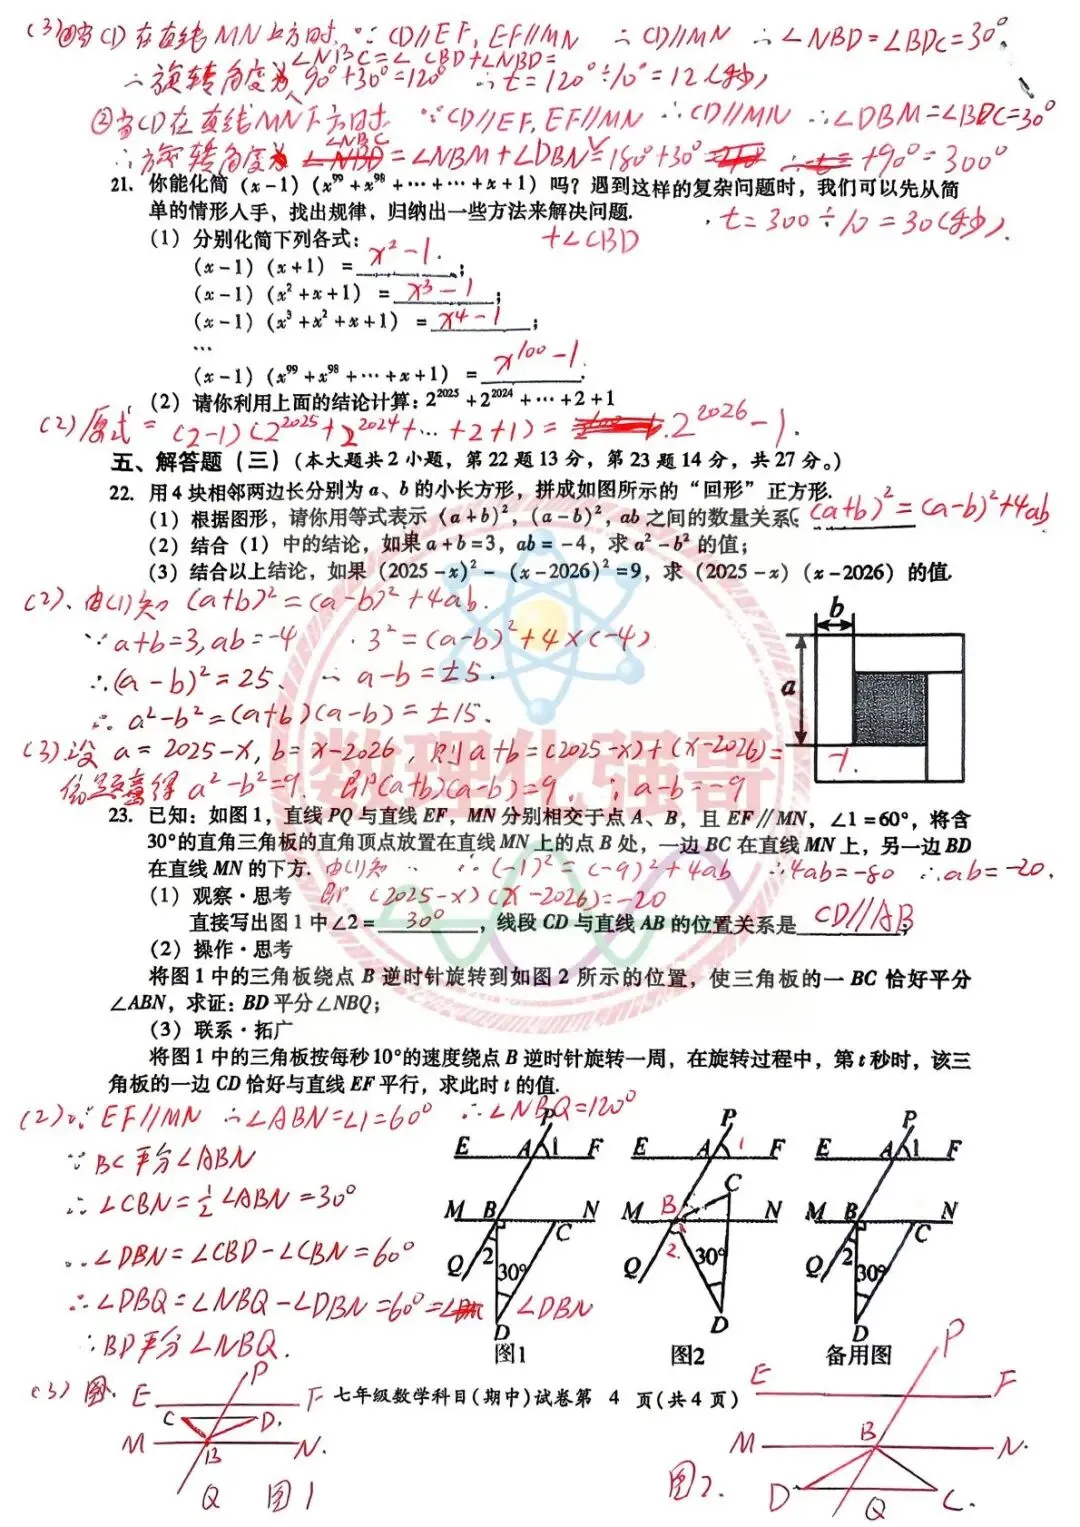 (3)①当CD在直线MN上方时, ∵CD//EF, EF//MN ∴CD//MN ∴∠NBD=∠BDC=30°
∠NBC=∠CBD+∠NBD=
∴旋转角度为90°+30°=120° ∴t=120°÷10°=12(秒)
②当CD在直线MN下方时 ∵CD//EF, EF//MN ∴CD//MN ∴∠DBM=∠BDC=30°
∠NBC
∴旋转角度为 =∠NBM+∠DBN=180°+30° +90°=300°
21. 你能化简(x-1)(x⁹⁹+x⁹⁸+…+…+x+1)吗?遇到这样的复杂问题时,我们可以先从简
单的情形入手,找出规律,归纳出一些方法来解决问题.
∴t=300÷10=30(秒).
(1)分别化简下列各式:
+∠CBD
(x-1)(x+1)= x²-1. ;
(x-1)(x²+x+1)= x³-1 ;
(x-1)(x³+x²+x+1)= x⁴-1 ;
…
(x-1)(x⁹⁹+x⁹⁸+…+x+1)= x¹⁰⁰-1 .
(2)请你利用上面的结论计算:2²⁰²⁵+2²⁰²⁴+…+2+1
(2)原式=(2-1)(2²⁰²⁵+2²⁰²⁴+…+2+1)= 2²⁰²⁶-1.
五、解答题(三)(本大题共2小题,第22题13分,第23题14分,共27分。)
22. 用4块相邻两边长分别为a、b的小长方形,拼成如图所示的“回形”正方形.
(1)根据图形,请你用等式表示(a+b)²,(a-b)²,ab之间的数量关系: (a+b)²=(a-b)²+4ab
(2)结合(1)中的结论,如果a+b=3,ab=-4,求a²-b²的值;
(3)结合以上结论,如果(2025-x)²-(x-2026)²=9,求(2025-x)(x-2026)的值.
(2)、由(1)知 (a+b)²=(a-b)²+4ab.
∵a+b=3, ab=-4 ∴3²=(a-b)²+4×(-4)
∴(a-b)²=25、 ∴a-b=±5.
∴a²-b²=(a+b)(a-b)=±15.
b
a
(3)设a=2025-x, b=x-2026, 则a+b=(2025-x)+(x-2026)= -1.
依题意得 a²-b²=9. 即(a+b)(a-b)=9 ∴a-b=-9
数理化强哥
23. 已知:如图1,直线PQ与直线EF,MN分别相交于点A、B,且EF∥MN,∠1=60°,将含
30°的直角三角板的直角顶点放置在直线MN上的点B处,一边BC在直线MN上,另一边BD
在直线MN的下方. 由(1)知 ∴(-1)²=(-9)²+4ab ∴4ab=-80 ∴ab=-20.
(1)观察·思考 即(2025-x)(x-2026)=-20
直接写出图1中∠2= 30° ,线段CD与直线AB的位置关系是 CD//AB ;
(2)操作·思考
将图1中的三角板绕点B逆时针旋转到如图2所示的位置,使三角板的一BC恰好平分
∠ABN,求证:BD平分∠NBQ;
(3)联系·拓广
将图1中的三角板按每秒10°的速度绕点B逆时针旋转一周,在旋转过程中,第t秒时,该三
角板的一边CD恰好与直线EF平行,求此时t的值.
(2)∵EF//MN ∴∠ABN=∠1=60° ∴∠NBQ=120°
∵BC平分∠ABN
∴∠CBN=½∠ABN=30°
∴∠DBN=∠CBD-∠CBN=60°
∴∠DBQ=∠NBQ-∠DBN=60°= ∠DBN
∴BD平分∠NBQ.
P P P
E A 1 F E A 1 F E A 1 F
M B C N M B C N M B C N
Q 2 30° Q 2 30° Q 2 30°
D D D
图1 图2 备用图
(3)图.
七年级数学科目(期中)试卷第 4 页(共4页)
E P F
C D.
M B N.
Q 图1
E P F
M B N.
D Q C.
图2.